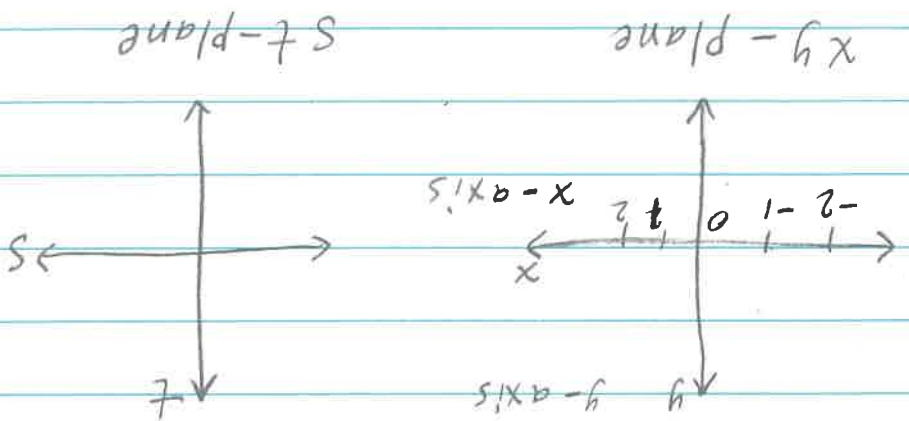 y y-axis t
x
-2 -1 0 1 2 S
x-axis
xy-plane St-plane